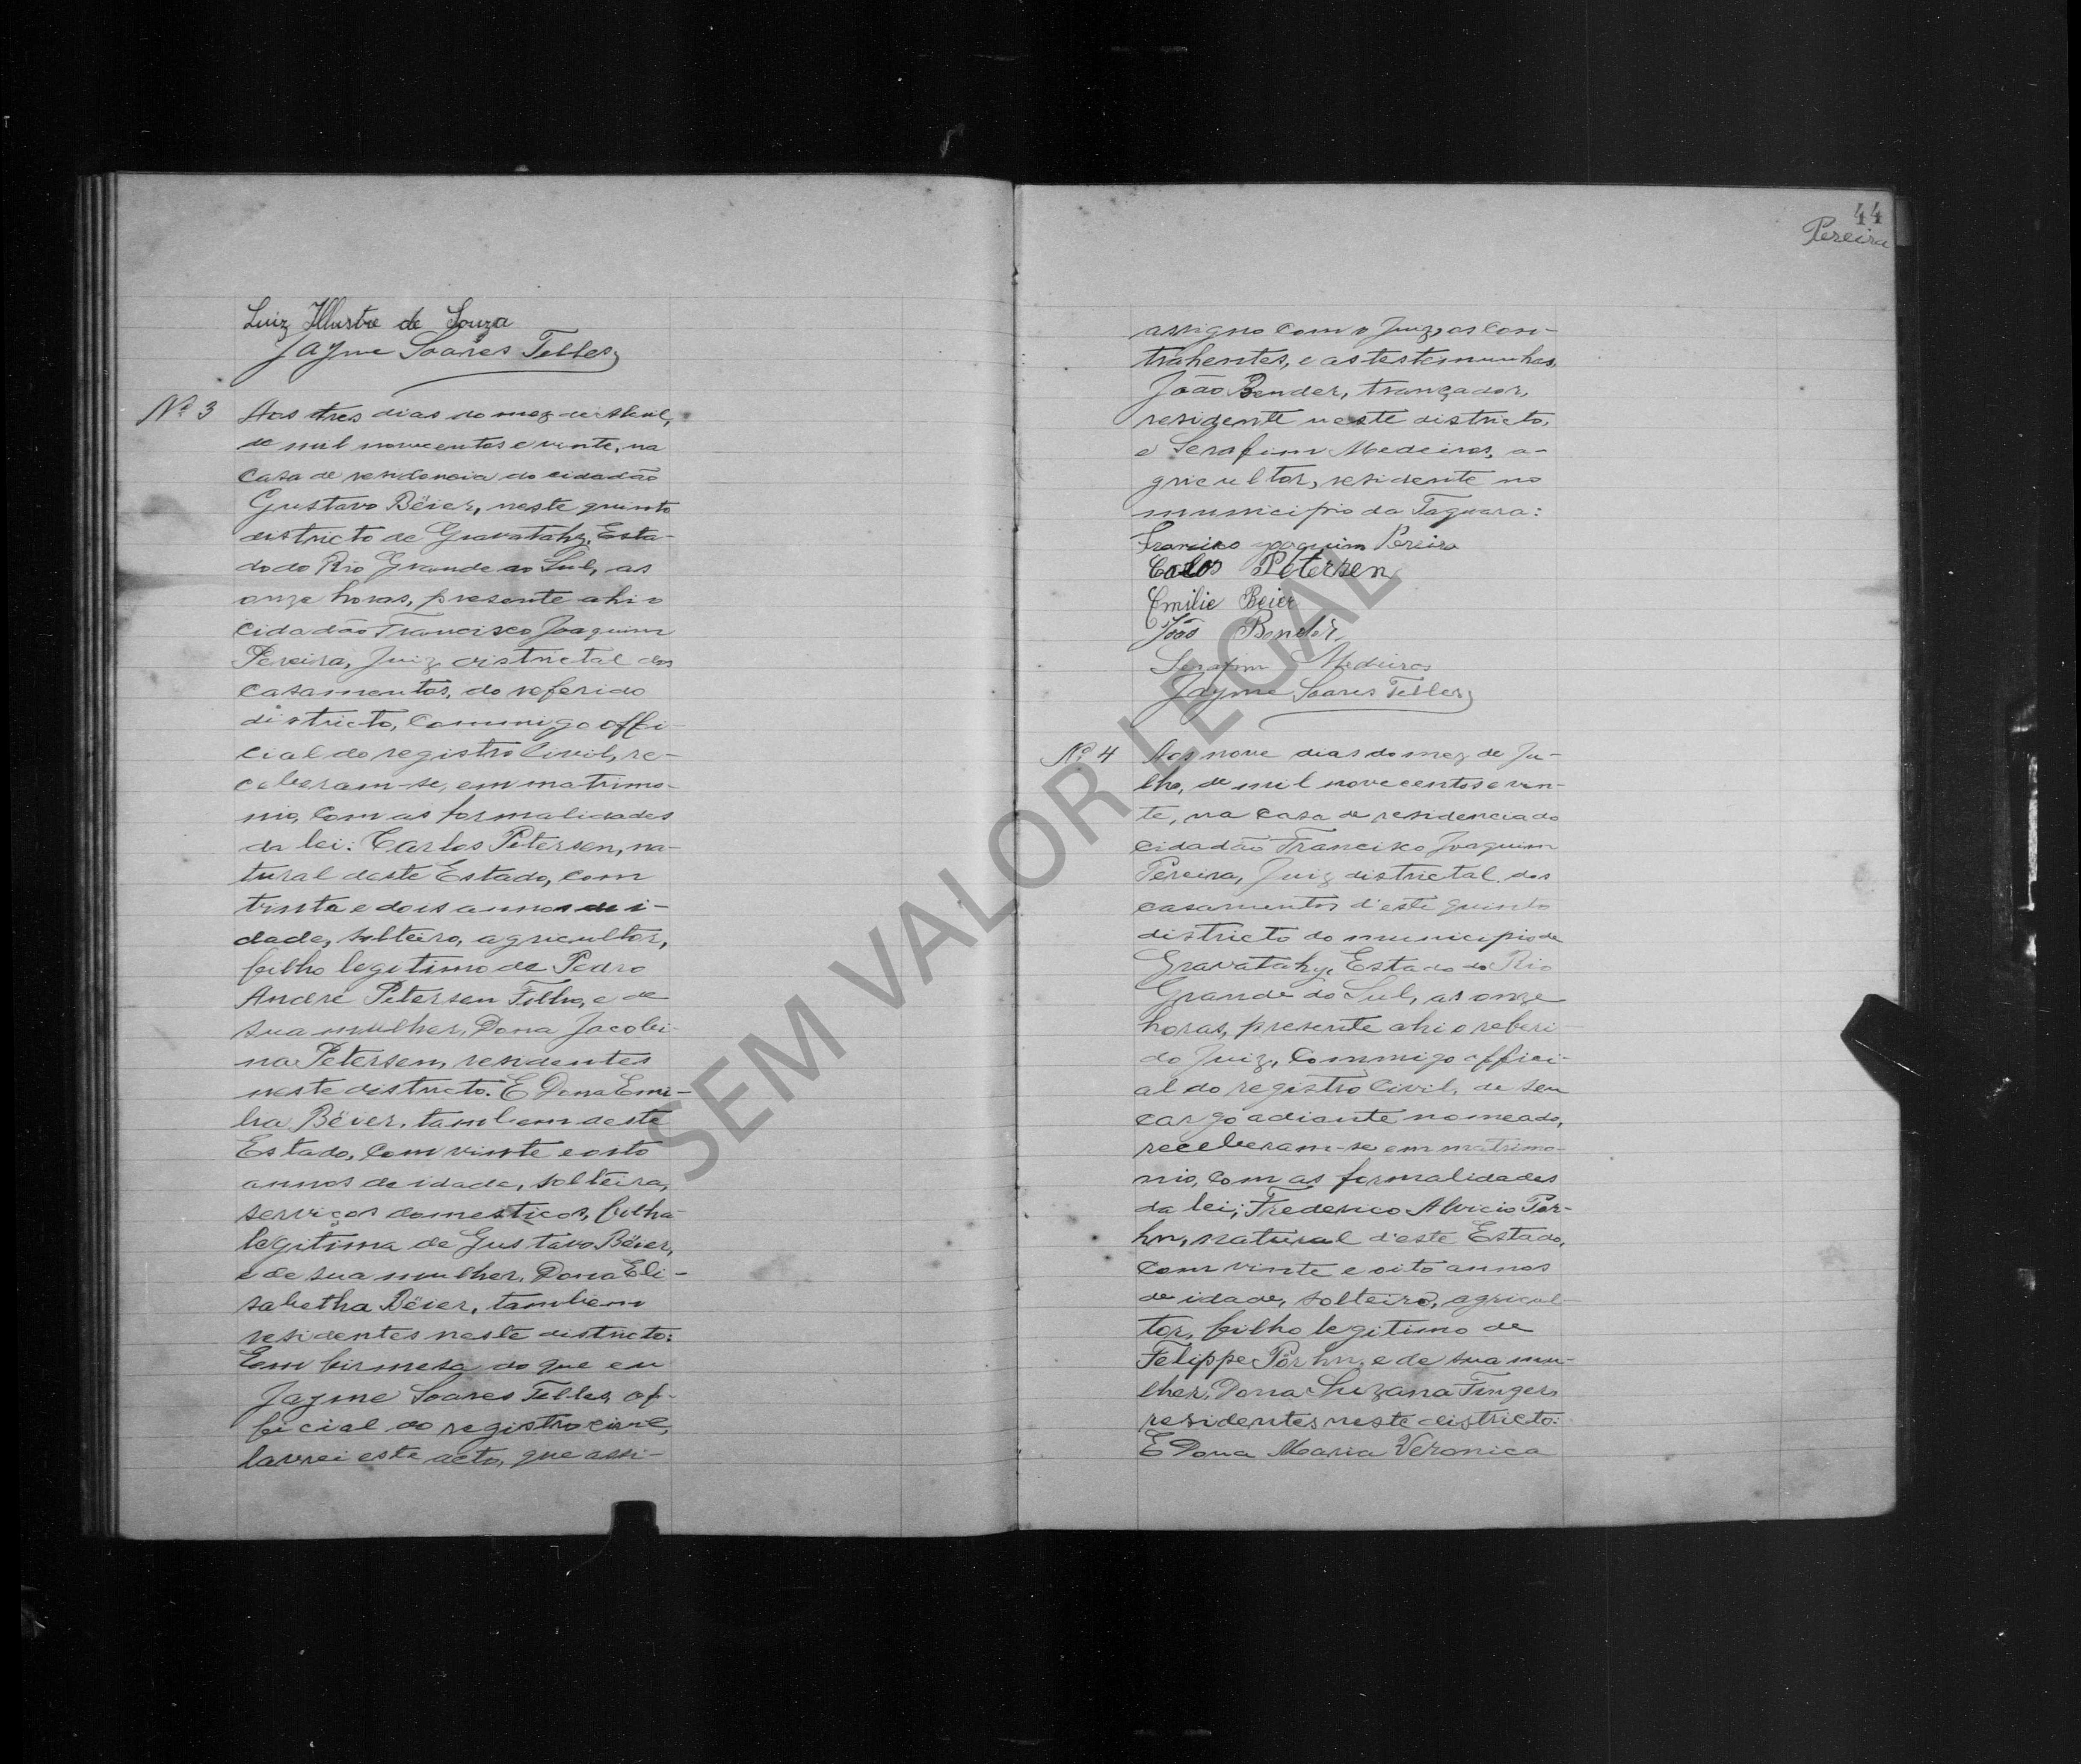 Luiz Illustre de Souza
Jayme Soares Telles
Nº 3 Aos tres dias do mez de Abril,
de mil novecentos e vinte, na
casa de residencia do cidadão
Gustavo Bëier, neste quinto
districto de Gravatahy, Esta-
do do Rio Grande do Sul, as
onze horas, presente ahi o
cidadão Francisco Joaquim
Pereira, Juiz districtal dos
casamentos, do referido
districto, commigo offi-
cial do registro civil, re-
ceberam-se, em matrimo-
nio, com as formalidades
da lei: Carlos Petersen, na-
tural deste Estado, com
trinta e dois annos de i-
dade, solteiro, agricultor,
filho legitimo de Pedro
André Petersen Filho, e de
sua mulher, Dona Jacobi-
na Petersen, residentes
neste districto. E Dona Emi-
lia Bëier, tambem deste
Estado, com vinte e oito
annos de idade, solteira,
serviços domesticos, filha
legitima de Gustavo Bëier,
e de sua mulher, Dona Eli-
sabetha Bëier, tambem
residentes neste districto:
Em firmesa do que eu
Jayme Soares Telles, of-
ficial do registro civil,
lavrei este acto, que assi-
44
Pereira
assigno com o Juiz, os con-
trahentes, e as testemunhas,
João Bender, trançador,
residente neste districto,
e Serafim Medeiros, a-
gricultor, residente no
municipio da Taquara:
Francisco Joaquim Pereira
Carlos Petersen
Emilie Beier
João Bender
Serafim Medeiros
Jayme Soares Telles
Nº 4 Aos nove dias do mez de Ju-
lho, de mil novecentos e vin-
te, na casa de residencia do
cidadão Francisco Joaquim
Pereira, Juiz districtal dos
casamentos d'este quinto
districto do municipio de
Gravatahy, Estado do Rio
Grande do Sul, as onze
horas, presente ahi o referi
do Juiz, commigo offici-
al do registro civil, de seu
cargo adiante nomeado,
receberam-se em matrimo-
nio, com as formalidades
da lei; Frederico Alvicio Pör-
hn, natural d'este Estado,
com vinte e oito annos
de idade, solteiro, agricul-
tor, filho legitimo de
Felippe Pörhn, e de sua mu-
lher, Dona Suzana Finger
residentes neste districto:
E Dona Maria Veronica
SEM VALOR LEGAL